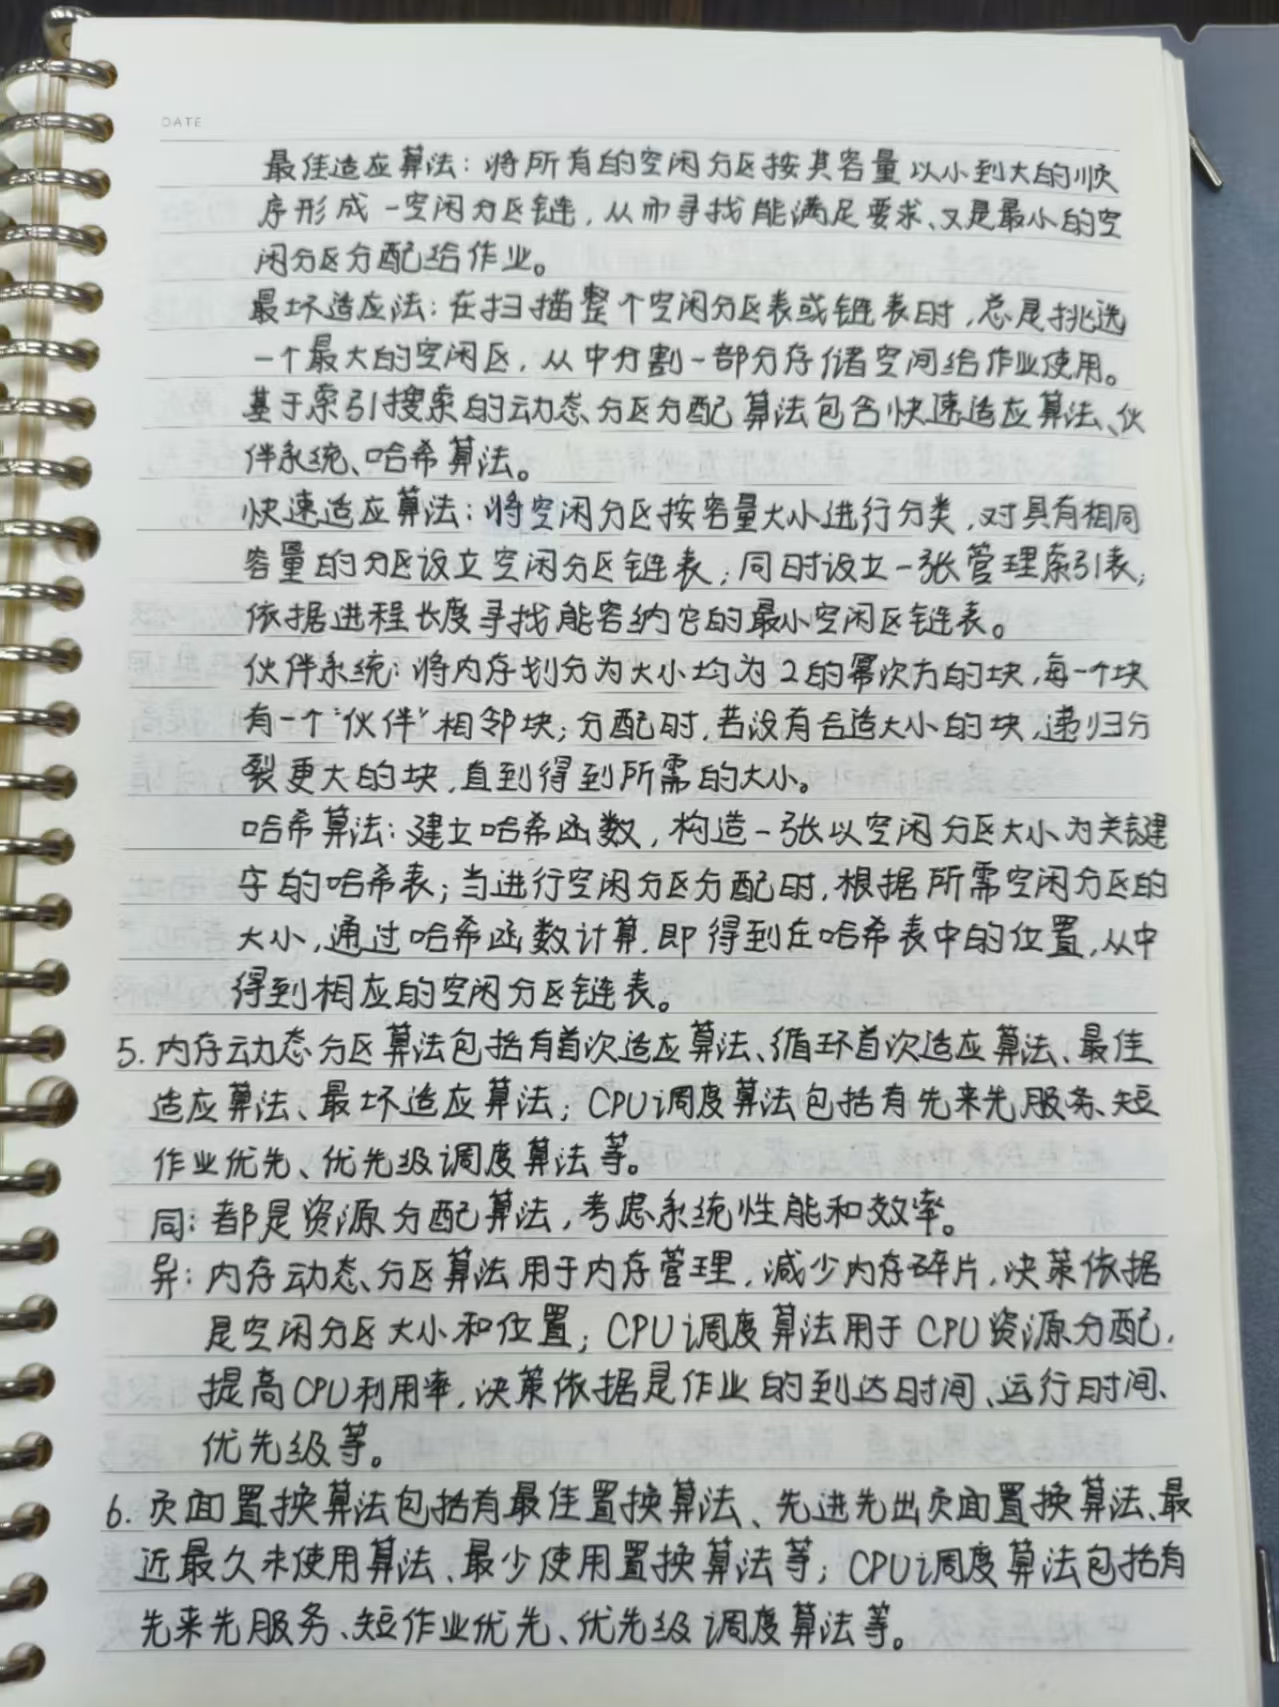 DATE
最佳适应算法：将所有的空闲分区按其容量以小到大的顺
序形成一空闲分区链，从而寻找能满足要求、又是最小的空
闲分区分配给作业。
最坏适应法：在扫描整个空闲分区表或链表时，总是挑选
一个最大的空闲区，从中分割一部分存储空间给作业使用。
基于索引搜索的动态分区分配算法包含快速适应算法、伙
伴系统、哈希算法。
快速适应算法：将空闲分区按容量大小进行分类，对具有相同
容量的分区设立空闲分区链表；同时设立一张管理索引表，
依据进程长度寻找能容纳它的最小空闲区链表。
伙伴系统：将内存划分为大小均为2的幂次方的块，每一个块
有一个“伙伴”相邻块；分配时，若没有合适大小的块，递归分
裂更大的块，直到得到所需的大小。
哈希算法：建立哈希函数，构造一张以空闲分区大小为关键
字的哈希表；当进行空闲分区分配时，根据所需空闲分区的
大小，通过哈希函数计算，即得到在哈希表中的位置，从中
得到相应的空闲分区链表。
5. 内存动态分区算法包括有首次适应算法、循环首次适应算法、最佳
适应算法、最坏适应算法；CPU调度算法包括有先来先服务、短
作业优先、优先级调度算法等。
同：都是资源分配算法，考虑系统性能和效率。
异：内存动态分区算法用于内存管理，减少内存碎片，决策依据
是空闲分区大小和位置；CPU调度算法用于CPU资源分配，
提高CPU利用率，决策依据是作业的到达时间、运行时间、
优先级等。
6. 页面置换算法包括有最佳置换算法、先进先出页面置换算法、最
近最久未使用算法、最少使用置换算法等；CPU调度算法包括有
先来先服务、短作业优先、优先级调度算法等。